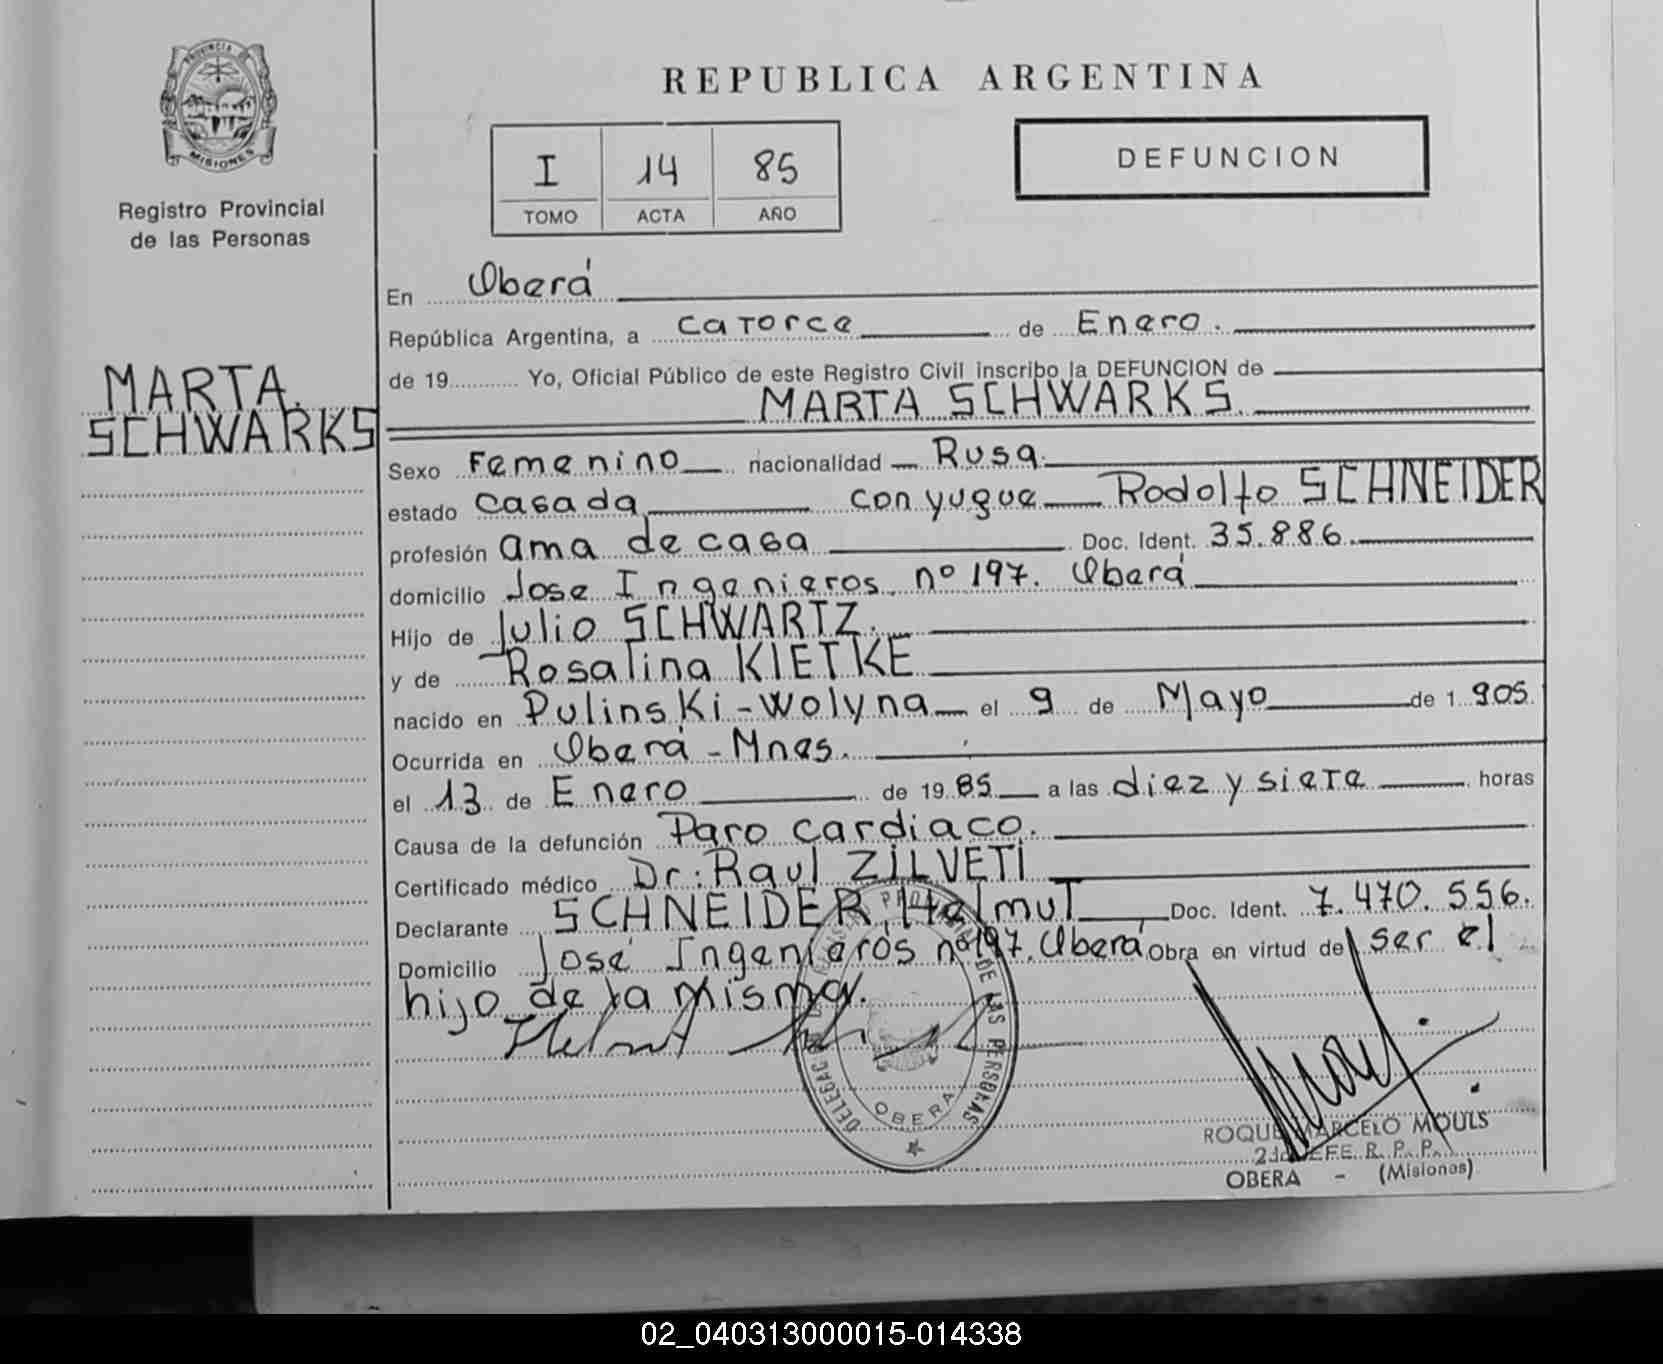 PROVINCIA DE
MISIONES
Registro Provincial
de las Personas
MARTA
SCHWARKS
REPUBLICA ARGENTINA
I 14 85
TOMO ACTA AÑO
DEFUNCION
En Oberá
República Argentina, a catorce de Enero.
de 19 Yo, Oficial Público de este Registro Civil inscribo la DEFUNCION de
MARTA SCHWARKS.
Sexo Femenino nacionalidad Rusa.
estado casada conyugue Rodolfo SCHNEIDER
profesión ama de casa Doc. Ident. 35.886.
domicilio Jose Ingenieros nº 197. Oberá
Hijo de Julio SCHWARTZ.
y de Rosalina KIETKE
nacido en Pulinski-Wolyna el 9 de Mayo de 1 905
Ocurrida en Oberá - Mnes.
el 13 de Enero de 19 85 a las diez y siete horas
Causa de la defunción Paro cardiaco.
Certificado médico Dr. Raul ZILVETI
Declarante SCHNEIDER, Helmut Doc. Ident. 7.470.556.
Domicilio José Ingenieros nº 197. Oberá Obra en virtud de ser el
hijo de la misma.
Helmut
PROVINCIAL DE LAS PERSONAS
OBERA
ROQUE MARCELO MOULS
JEFE R. P. P.
OBERA - (Misiones)
02_040313000015-014338